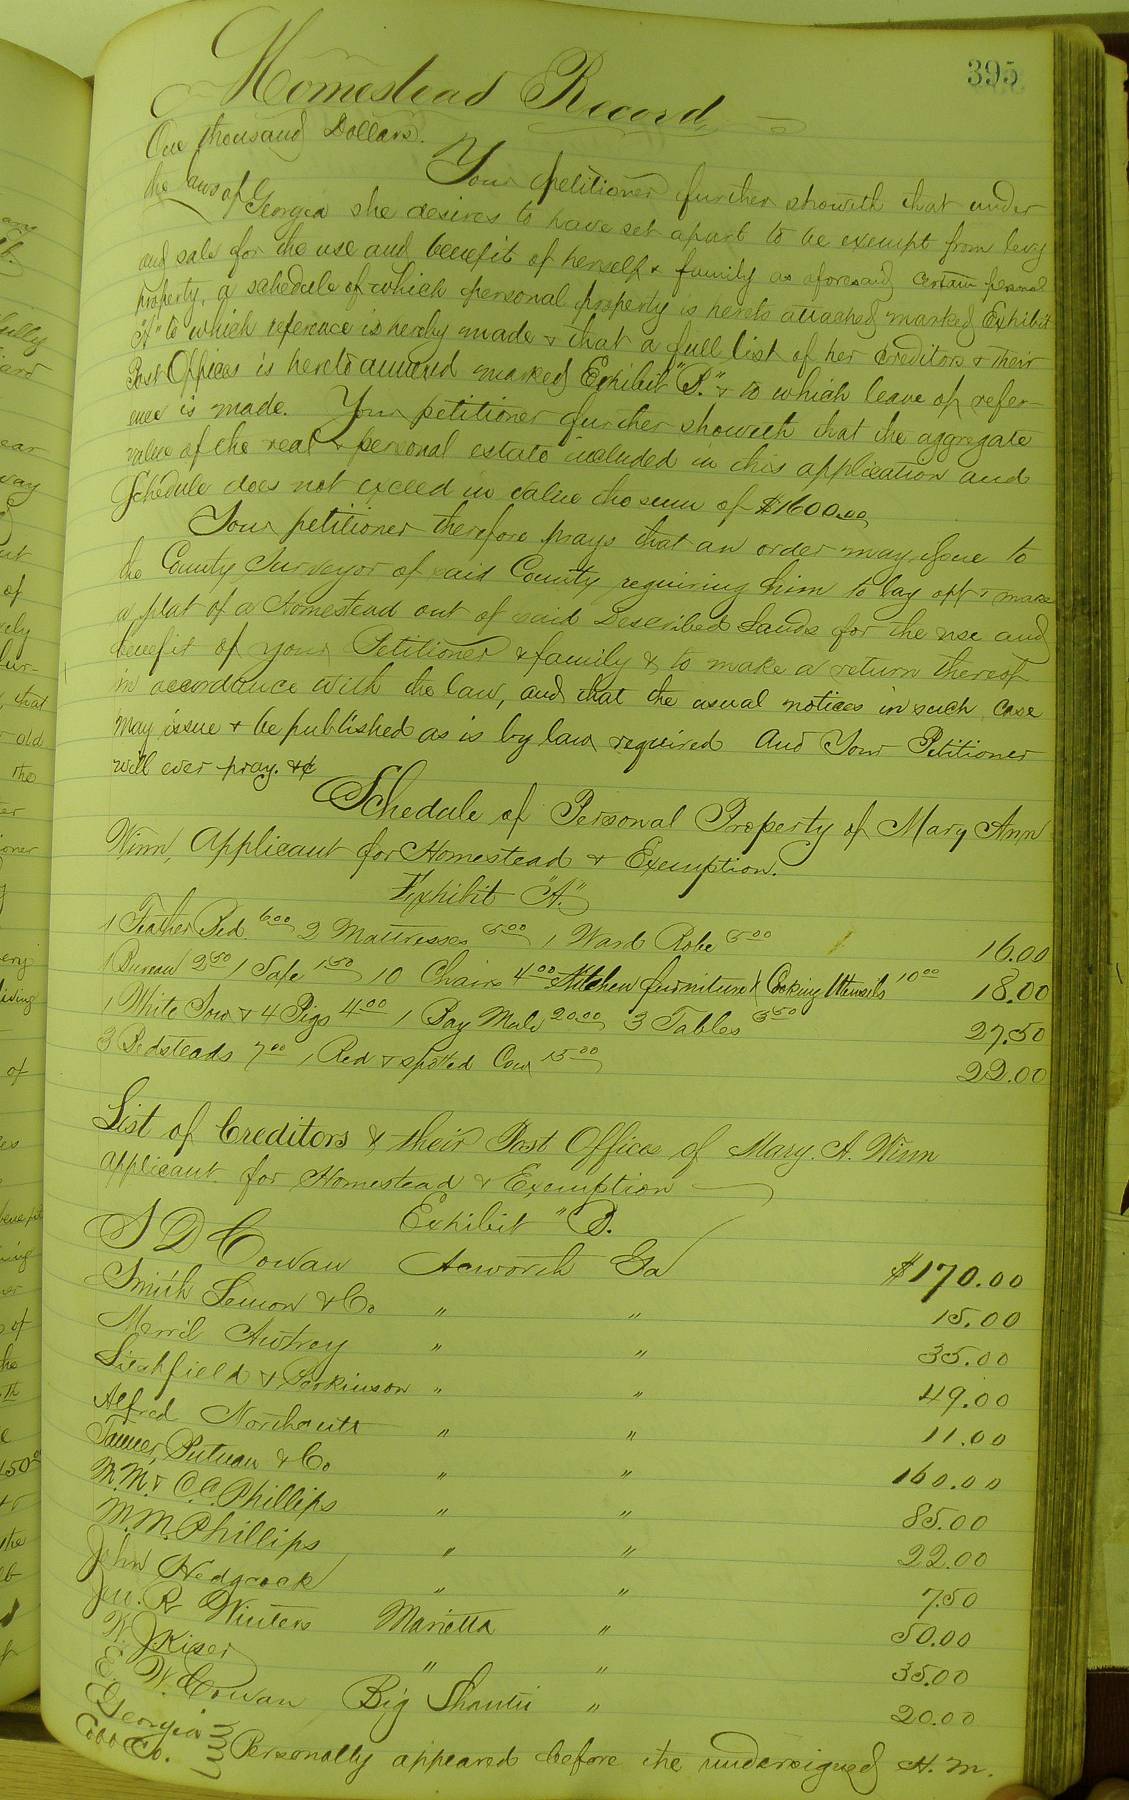 395
Homestead Record
One thousand Dollars.
Your petitioner further showeth that under
the laws of Georgia she desires to have set apart to be exempt from levy
and sale for the use and benefit of herself & family as aforesaid certain personal
property, a schedule of which personal property is hereto attached marked Exhibit
"A" to which reference is hereby made & that a full list of her creditors & their
Post Offices is hereto annexed marked Exhibit "B." & to which leave of refer-
ence is made. Your petitioner further showeth that the aggregate
value of the real & personal estate included in this application and
Schedule does not exceed in value the sum of $1600.00
Your petitioner therefore prays that an order may issue to
the County Surveyor of said County requiring him to lay off & make
a plat of a Homestead out of said Described Lands for the use and
benefit of your Petitioner & family & to make a return thereof
in accordance with the law, and that the usual notices in such case
may issue & be published as is by law required And Your Petitioner
will ever pray. &c
Schedule of Personal Property of Mary Ann
Winn, Applicant for Homestead & Exemption.
Exhibit "A."
1 Feather Bed 6.00 2 Mattresses 5.00 1 Ward Robe 5.00 16.00
1 Bureau 2.50 1 Safe 1.50 10 Chairs 4.00 Kitchen furniture & Cooking Utensils 10.00 18.00
1 White Sow & 4 Pigs 4.00 1 Bay Mule 20.00 3 Tables 3.50 27.50
3 Bedsteads 7.00 1 Red & spotted Cow 15.00 22.00
List of Creditors & their Post Offices of Mary. A. Winn
applicant for Homestead & Exemption
Exhibit "B.
S D Cowan Acworth Ga $170.00
Smith Lemon & Co " " 15.00
Merril Awtrey " " 35.00
Litchfield & Parkinson " " 49.00
Alfred Northcutt " " 11.00
Tanner, Putnam & Co " " 160.00
M.M. & C.C. Phillips " " 85.00
M.M. Phillips " " 22.00
John Hedgcock " " 7.50
Jno. R Winters Marietta " 50.00
W. J. Kiser " " 35.00
E. W. Cowan Big Shanty " 20.00
Georgia
Cobb Co. Personally appeared before the undersigned H. M.